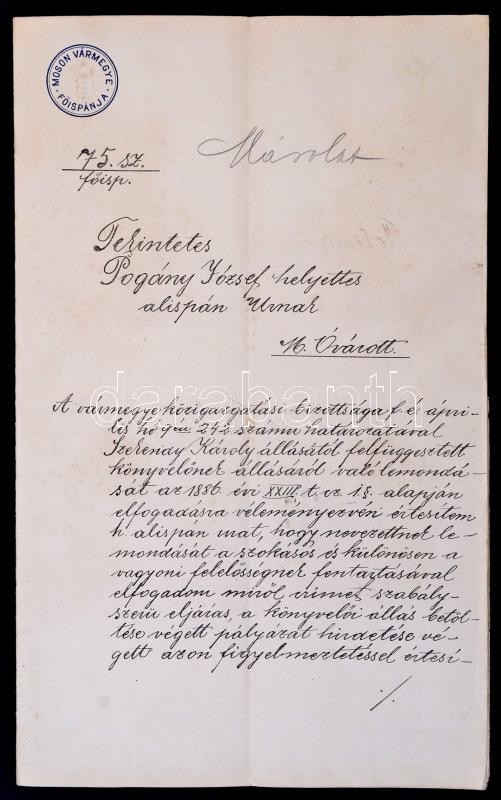 MOSON VÁRMEGYE
FŐISPÁNJA
75. sz.
főisp.
Másolat
Tekintetes
Pogány József helyettes
alispán Urnak
M. Óvárott.
A vármegye közigazgatási bizottsága f. é. ápri-
lis hó 242 számu határozatával
Szekenáy Károly állásától felfüggesztett
könyvelőnek állásáról való lemondá-
sát az 1886. évi XXIII. t. cz 1. §. alapján
elfogadásra véleményezvén értesítem
h. alispán urat, hogy nevezettnek le-
mondását a szokásos és különösen a
vagyoni felelősségnek fentartásával
elfogadom miről címet szabály-
szerü eljárás, a könyvelői állás betöl-
tése végett pályázat hirdetése vé-
gett azon figyelmeztetéssel értesí-
./.
darabanth